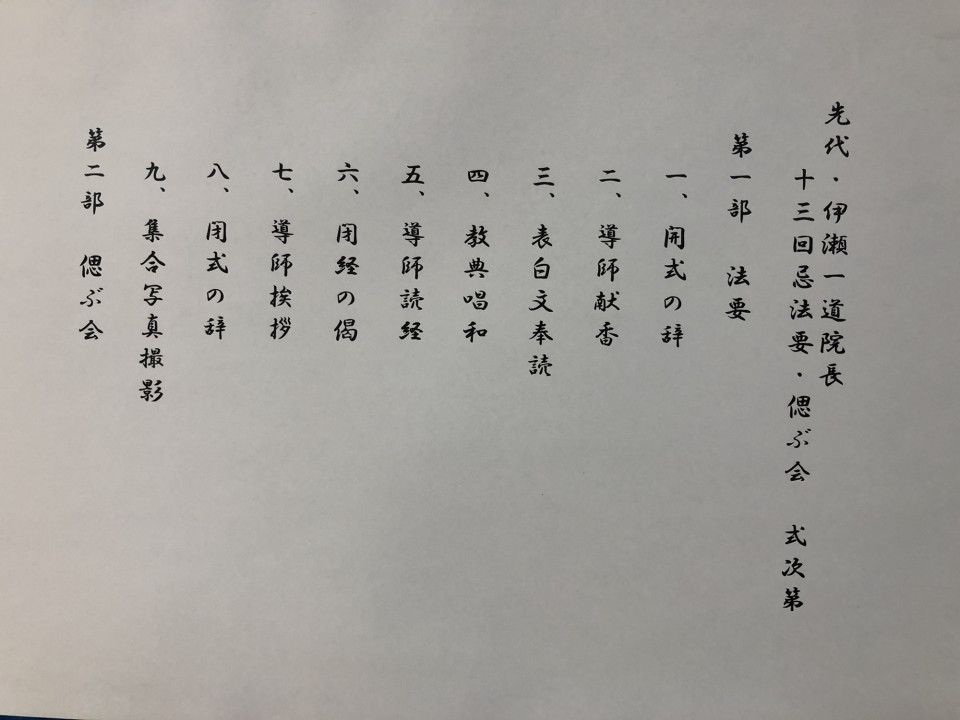 先代・伊瀬一道院長
十三回忌法要・偲ぶ会　式次第
第一部　法要
一、開式の辞
二、導師献香
三、表白文奉読
四、教典唱和
五、導師読経
六、閉経の偈
七、導師挨拶
八、閉式の辞
九、集合写真撮影
第二部　偲ぶ会